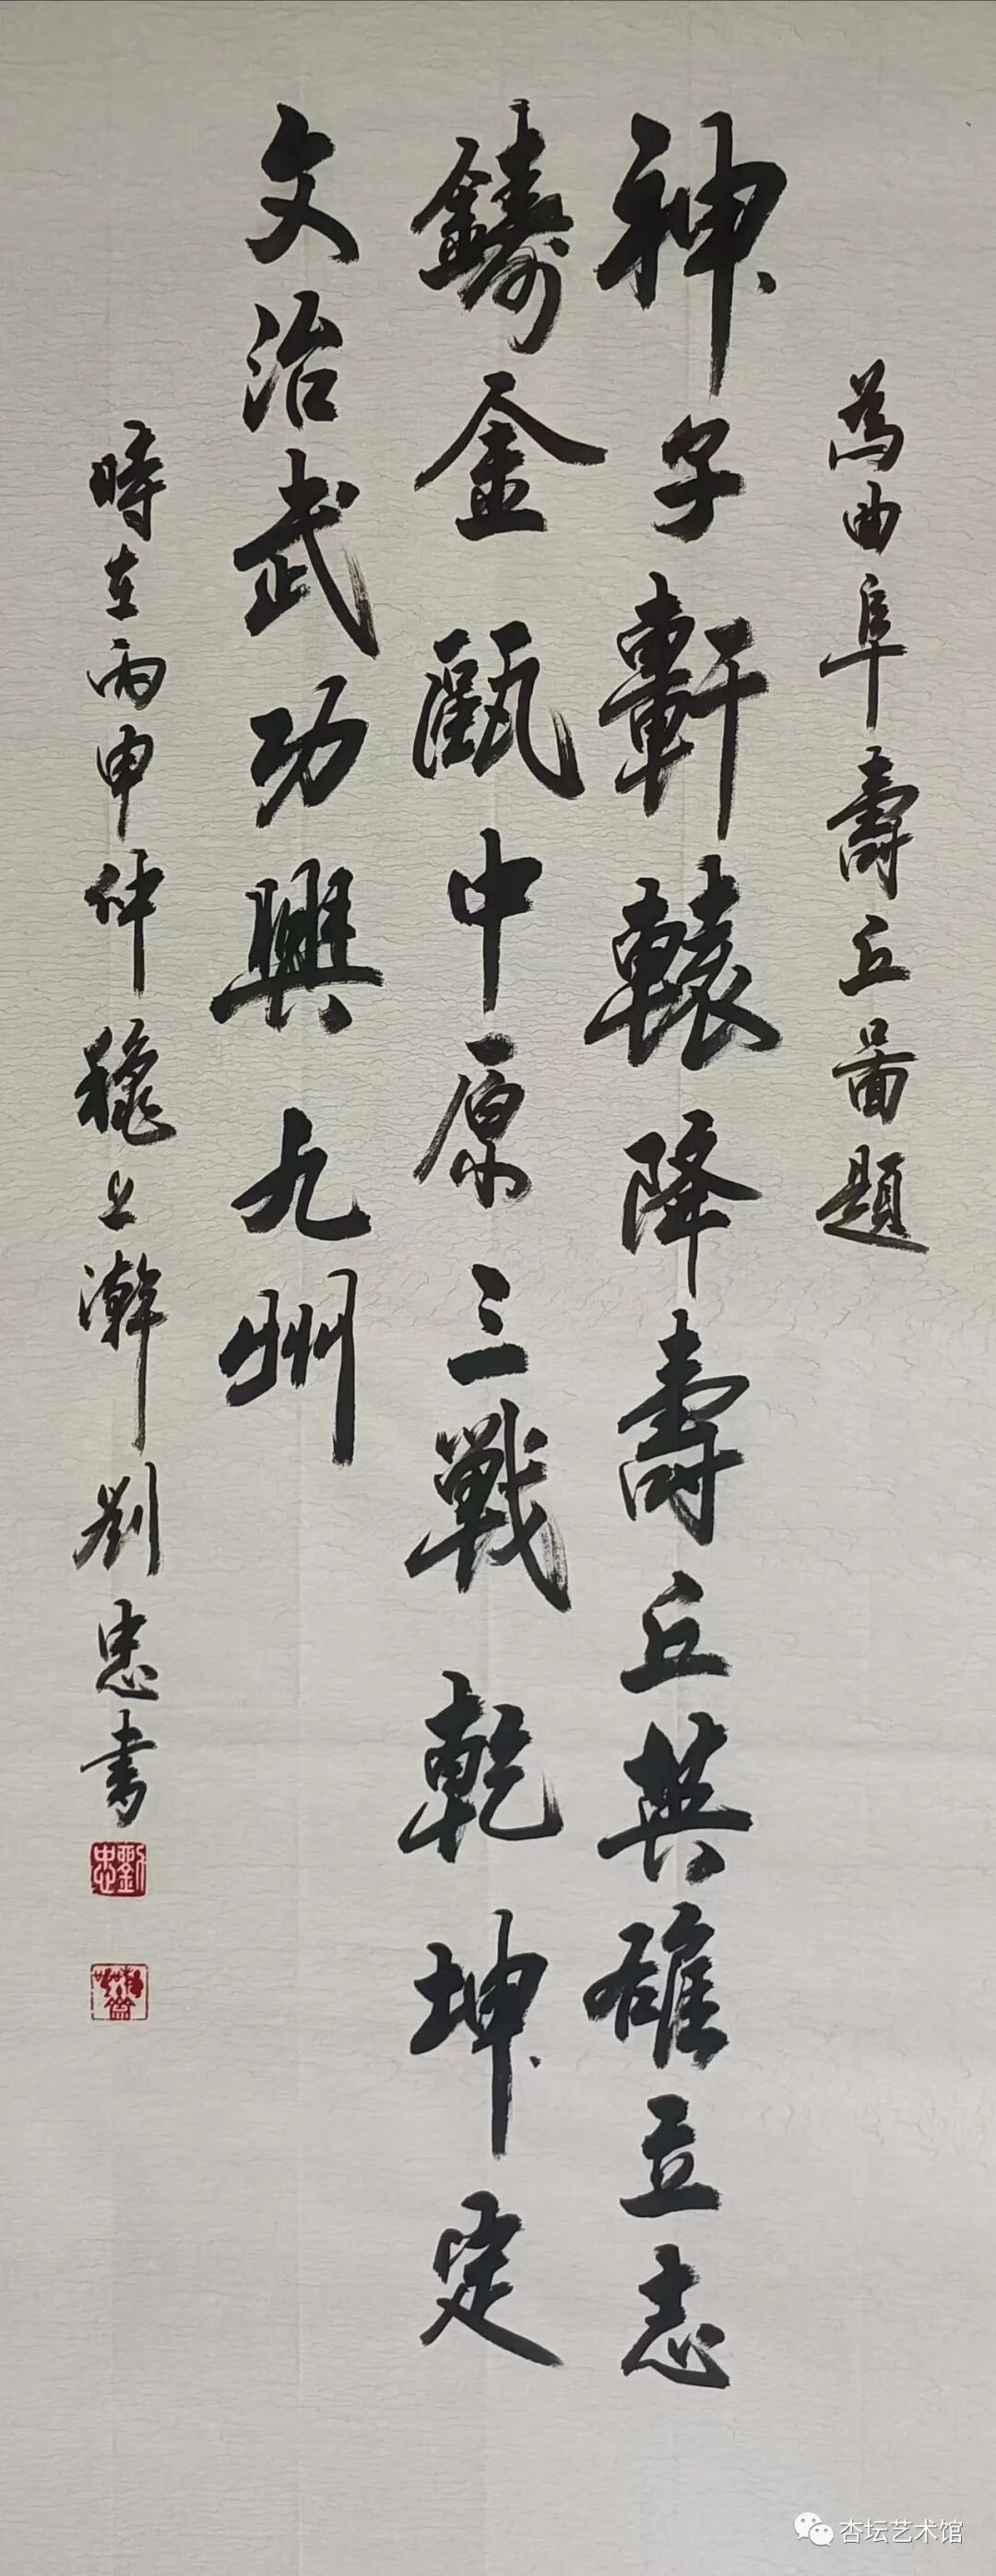 為曲阜壽丘啚題
神子軒轅降壽丘英雄立志
鑄金甌中原三戰乾坤定
文治武功興九州
時在丙申仲穐上澣劉忠書
劉忠
杏坛艺术馆